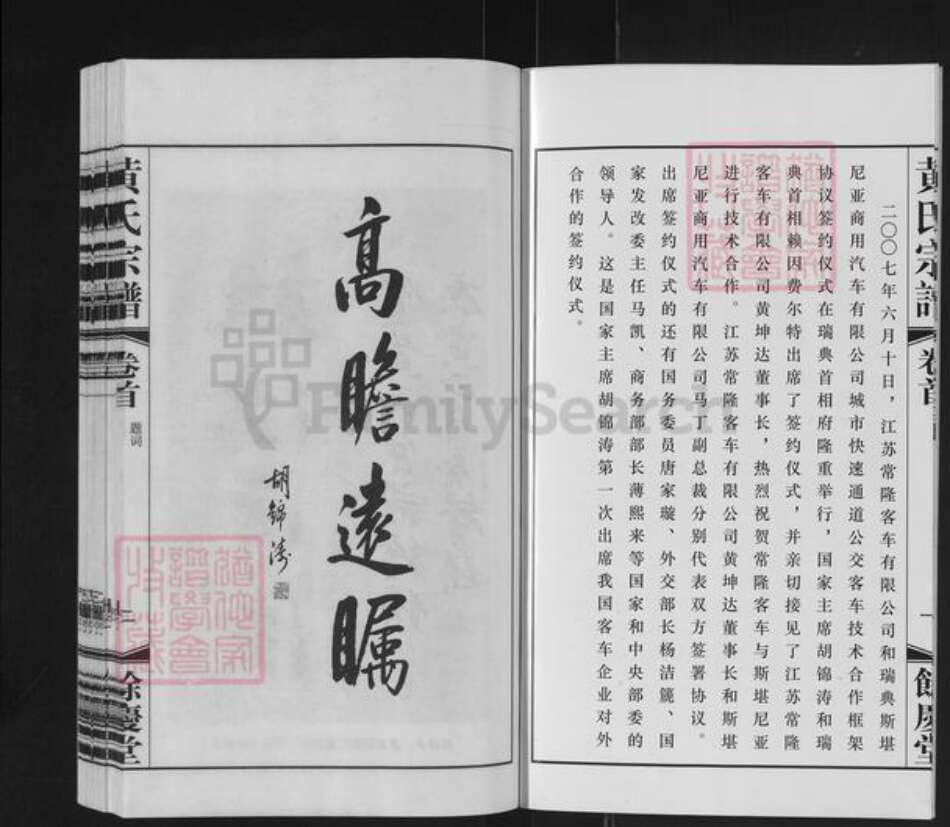 黄氏宗譜
卷首
二〇〇七年六月十日，江苏常隆客车有限公司和瑞典斯堪
尼亚商用汽车有限公司城市快速通道公交客车技术合作框架
协议签约仪式在瑞典首相府隆重举行，国家主席胡锦涛和瑞
典首相赖因费尔特出席了签约仪式，并亲切接见了江苏常隆
客车有限公司黄坤达董事长，热烈祝贺常隆客车与斯堪尼亚
进行技术合作。江苏常隆客车有限公司黄坤达董事长和斯堪
尼亚商用汽车有限公司马丁副总裁分别代表双方签署协议。
出席签约仪式的还有国务委员唐家璇、外交部长杨洁篪、国
家发改委主任马凯、商务部部长薄熙来等国家和中央部委的
领导人。这是国家主席胡锦涛第一次出席我国客车企业对外
合作的签约仪式。
餘慶堂
高瞻遠瞩
胡锦涛
黄氏宗譜
卷首
题词
十二
餘慶堂
FamilySearch